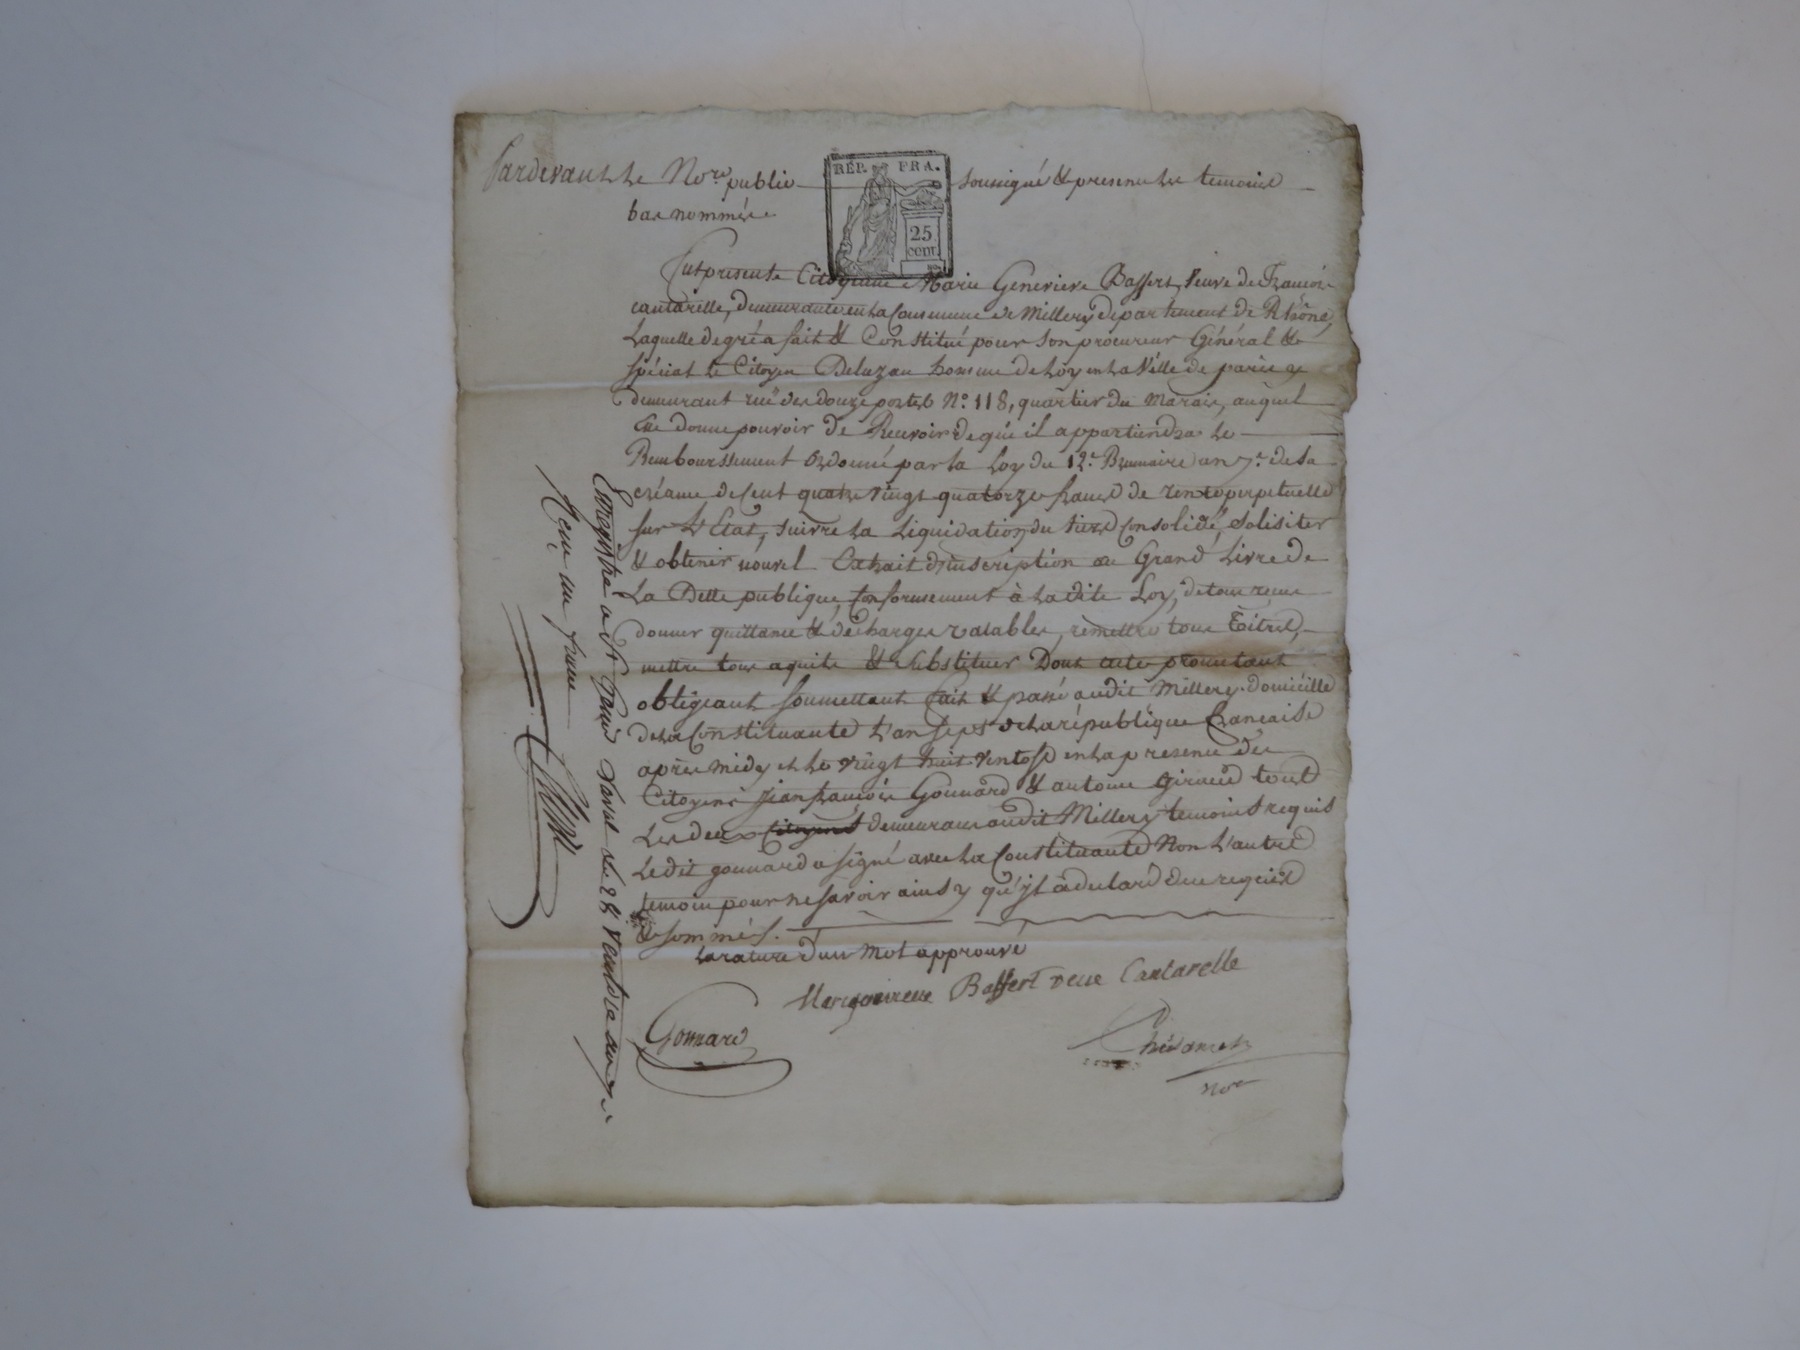 Pardevant Le No.re public soussigné & presence des temoins
bas nommés
REP. FRA.
25 cent.
fut presente Citoyenne Marie Genevieve Bassert, veuve de François
cantarelle, demeurante en La Commune de Millery departement du Rhône,
Laquelle de gré a fait & Constitué pour son procureur Général &
spécial Le Citoyen Deluzau homme de Loy en La Ville de paris y
demeurant rue des douze portes N.º 118, quartier du marais, auquel
Elle donne pouvoir de Recevoir de qui il appartiendra Le
Remboursement Ordonné par la Loy du 12.e Brumaire an 7.e de sa
créance de Cent quatre vingt quatorze francs de rente perpetuelle
sur L'Etat, suivre La Liquidation du tiers Consolidé, soliciter
& obtenir nouvel Extrait d'inscription au Grand Livre de
La Dette publique, Conformement à La dite Loy, de tous reçus
donner quittance & décharges valables, remettre tous Titres,
mettre tous aquits & substituer Dont acte promettant
obligeant soumettant fait & passé audit Millery domicille
de La Constituante L'an sept de La république francaise
après midy et Le vingt huit Ventose en La presence des
Citoyens Jean francois Gonnard & antoine Giraud tous
Les deux Citoyens demeurans audit Millery temoins requis
Le dit gonnard a signé avec La Constituante Non L'autre
temoin pour ne savoir ainsy qu'il à declaré de ce requis
& sommés.
La rature d'un mot approuvé
Bassert veue Cantarelle
Gonnard
No.re
Enregistré a St Genis Laval Le 28 ventose an 7.e
Reçu un franc